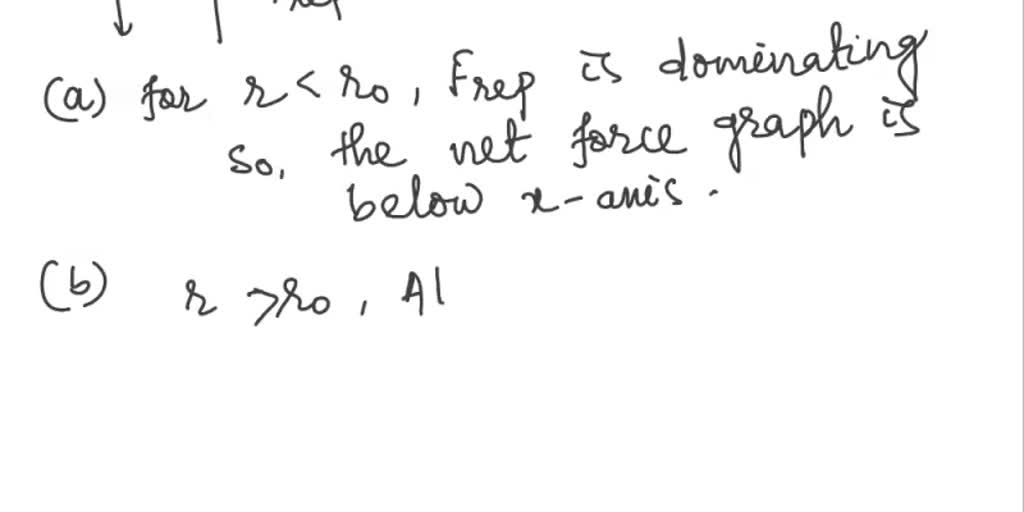 (a) for r < r₀, Frep is dominating
so, the net force graph is
below x-axis.
(b) r > r₀, Al